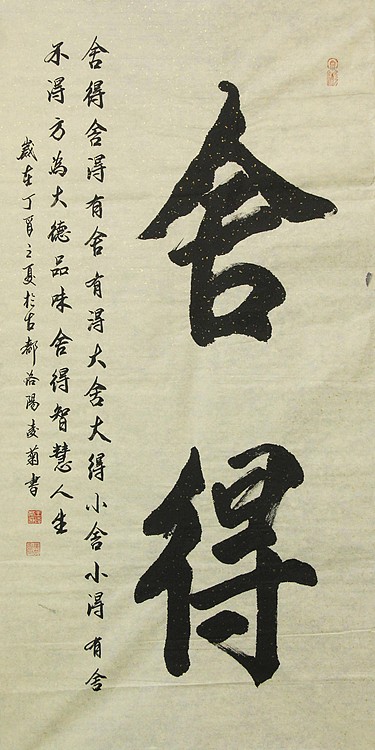 舍得
舍得舍得有舍有得大舍大得小舍小得有舍
不得方为大德品味舍得智慧人生
岁在丁酉之夏於古都洛陽凌菊书